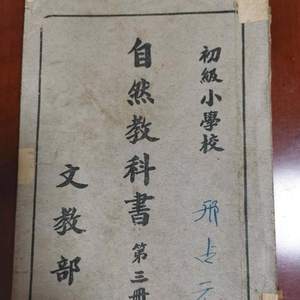 初級小學校
自然教科書 第三冊
文教部
邢占元